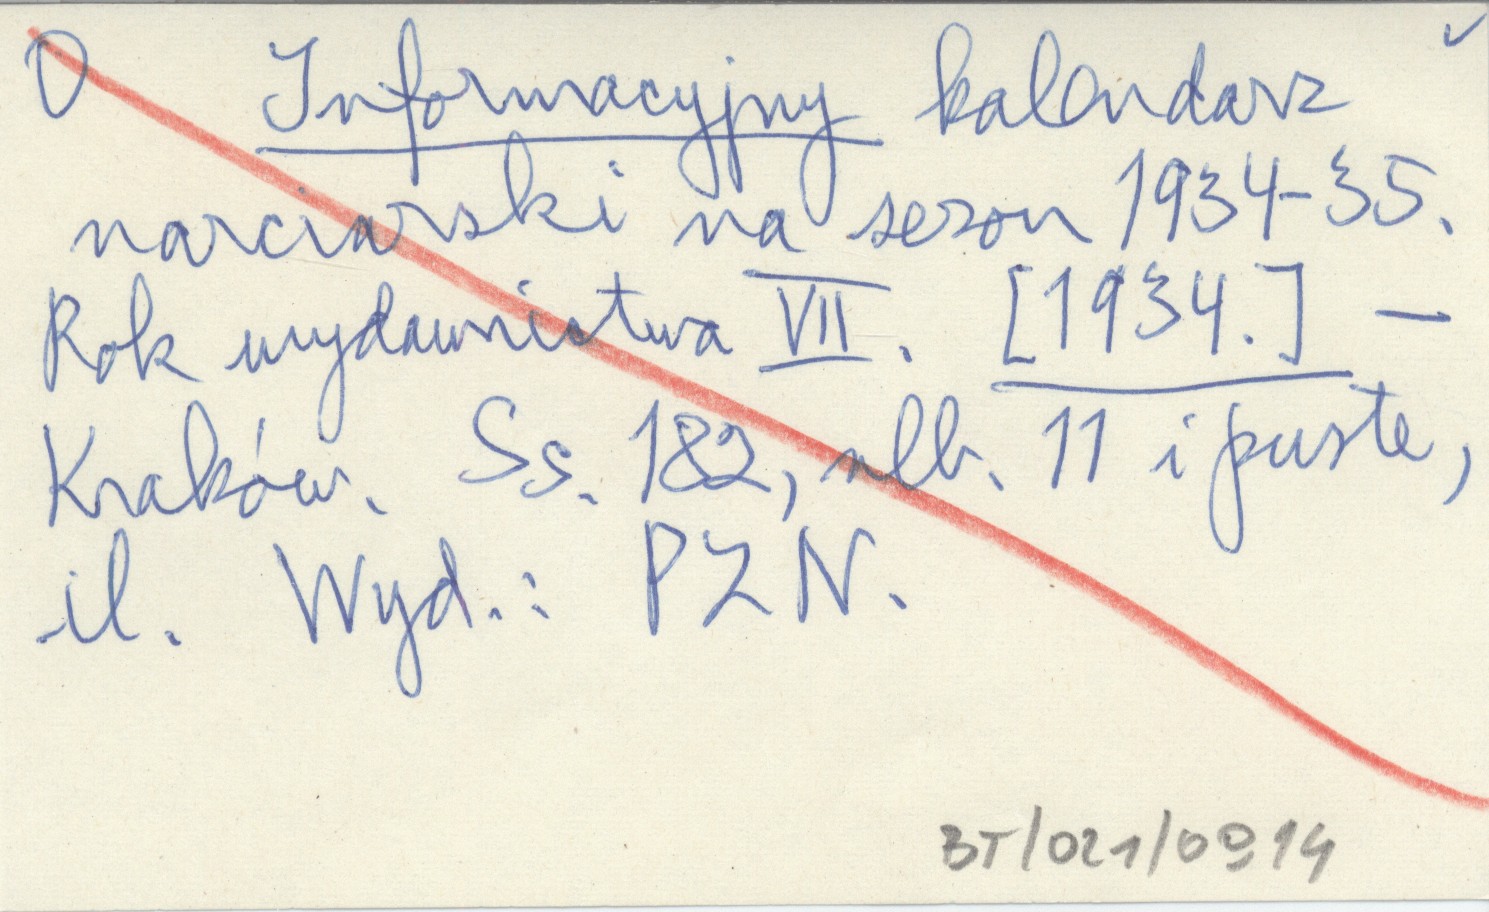 O Informacyjny kalendarz
narciarski na sezon 1934-35.
Rok wydawnictwa VII. [1934.] —
Kraków. Ss. 182, nlb. 11 i puste,
il. Wyd.: PZN.
BT/021/0914